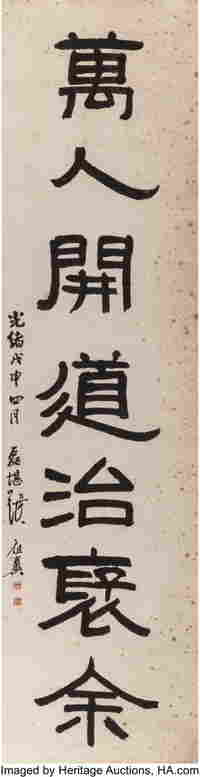 萬人開道治褒余
光緒戊申四月
Imaged by Heritage Auctions, HA.com